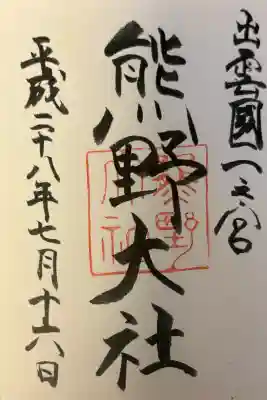 出雲國一之宮
熊野大社
平成二十八年七月十六日